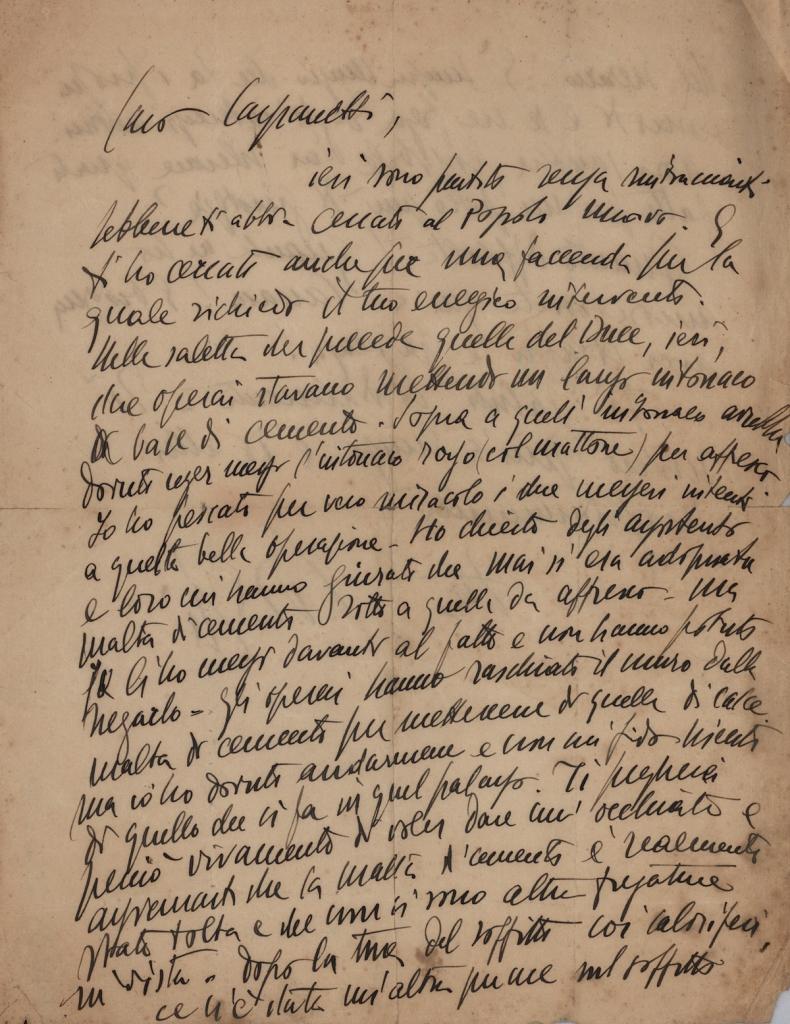 Caro Carpanetti,
ieri sono partito senza
sebbene ti abbia cercato al Popolo nuovo. E
ti ho cercato anche per una faccenda per la
quale richiedo il tuo energico intervento.
Nella saletta che precede quella del Duce, ieri,
due operai stavano mettendo un largo intonaco
di base di cemento. Sopra a quell' intonaco
dovuto esser messo l'intonaco rozzo (col mattone) per affresco.
Io ho pescato per vero miracolo i due messeri intenti
a quella bella operazione - Ho chiesto degli
e loro mi hanno giurato che mai si era adoprata
malta di cemento sotto a quella da affresco - ma
li ho messi davanti al fatto e non hanno potuto
negarlo - gli operai hanno raschiato il muro dalla
malta di cemento per mettercene di quella di calce.
ma io ho dovuto andarmene e non mi fido niente
di quello che si fa in quel palazzo. Ti pregherei
perciò vivamente di voler dare un' occhiata e
che la malta di cemento è realmente
stata tolta e che non ci sono altre fregature
in vista. Dopo la tua del soffitto coi caloriferi,
ce n'è stata un'altra pure sul soffitto